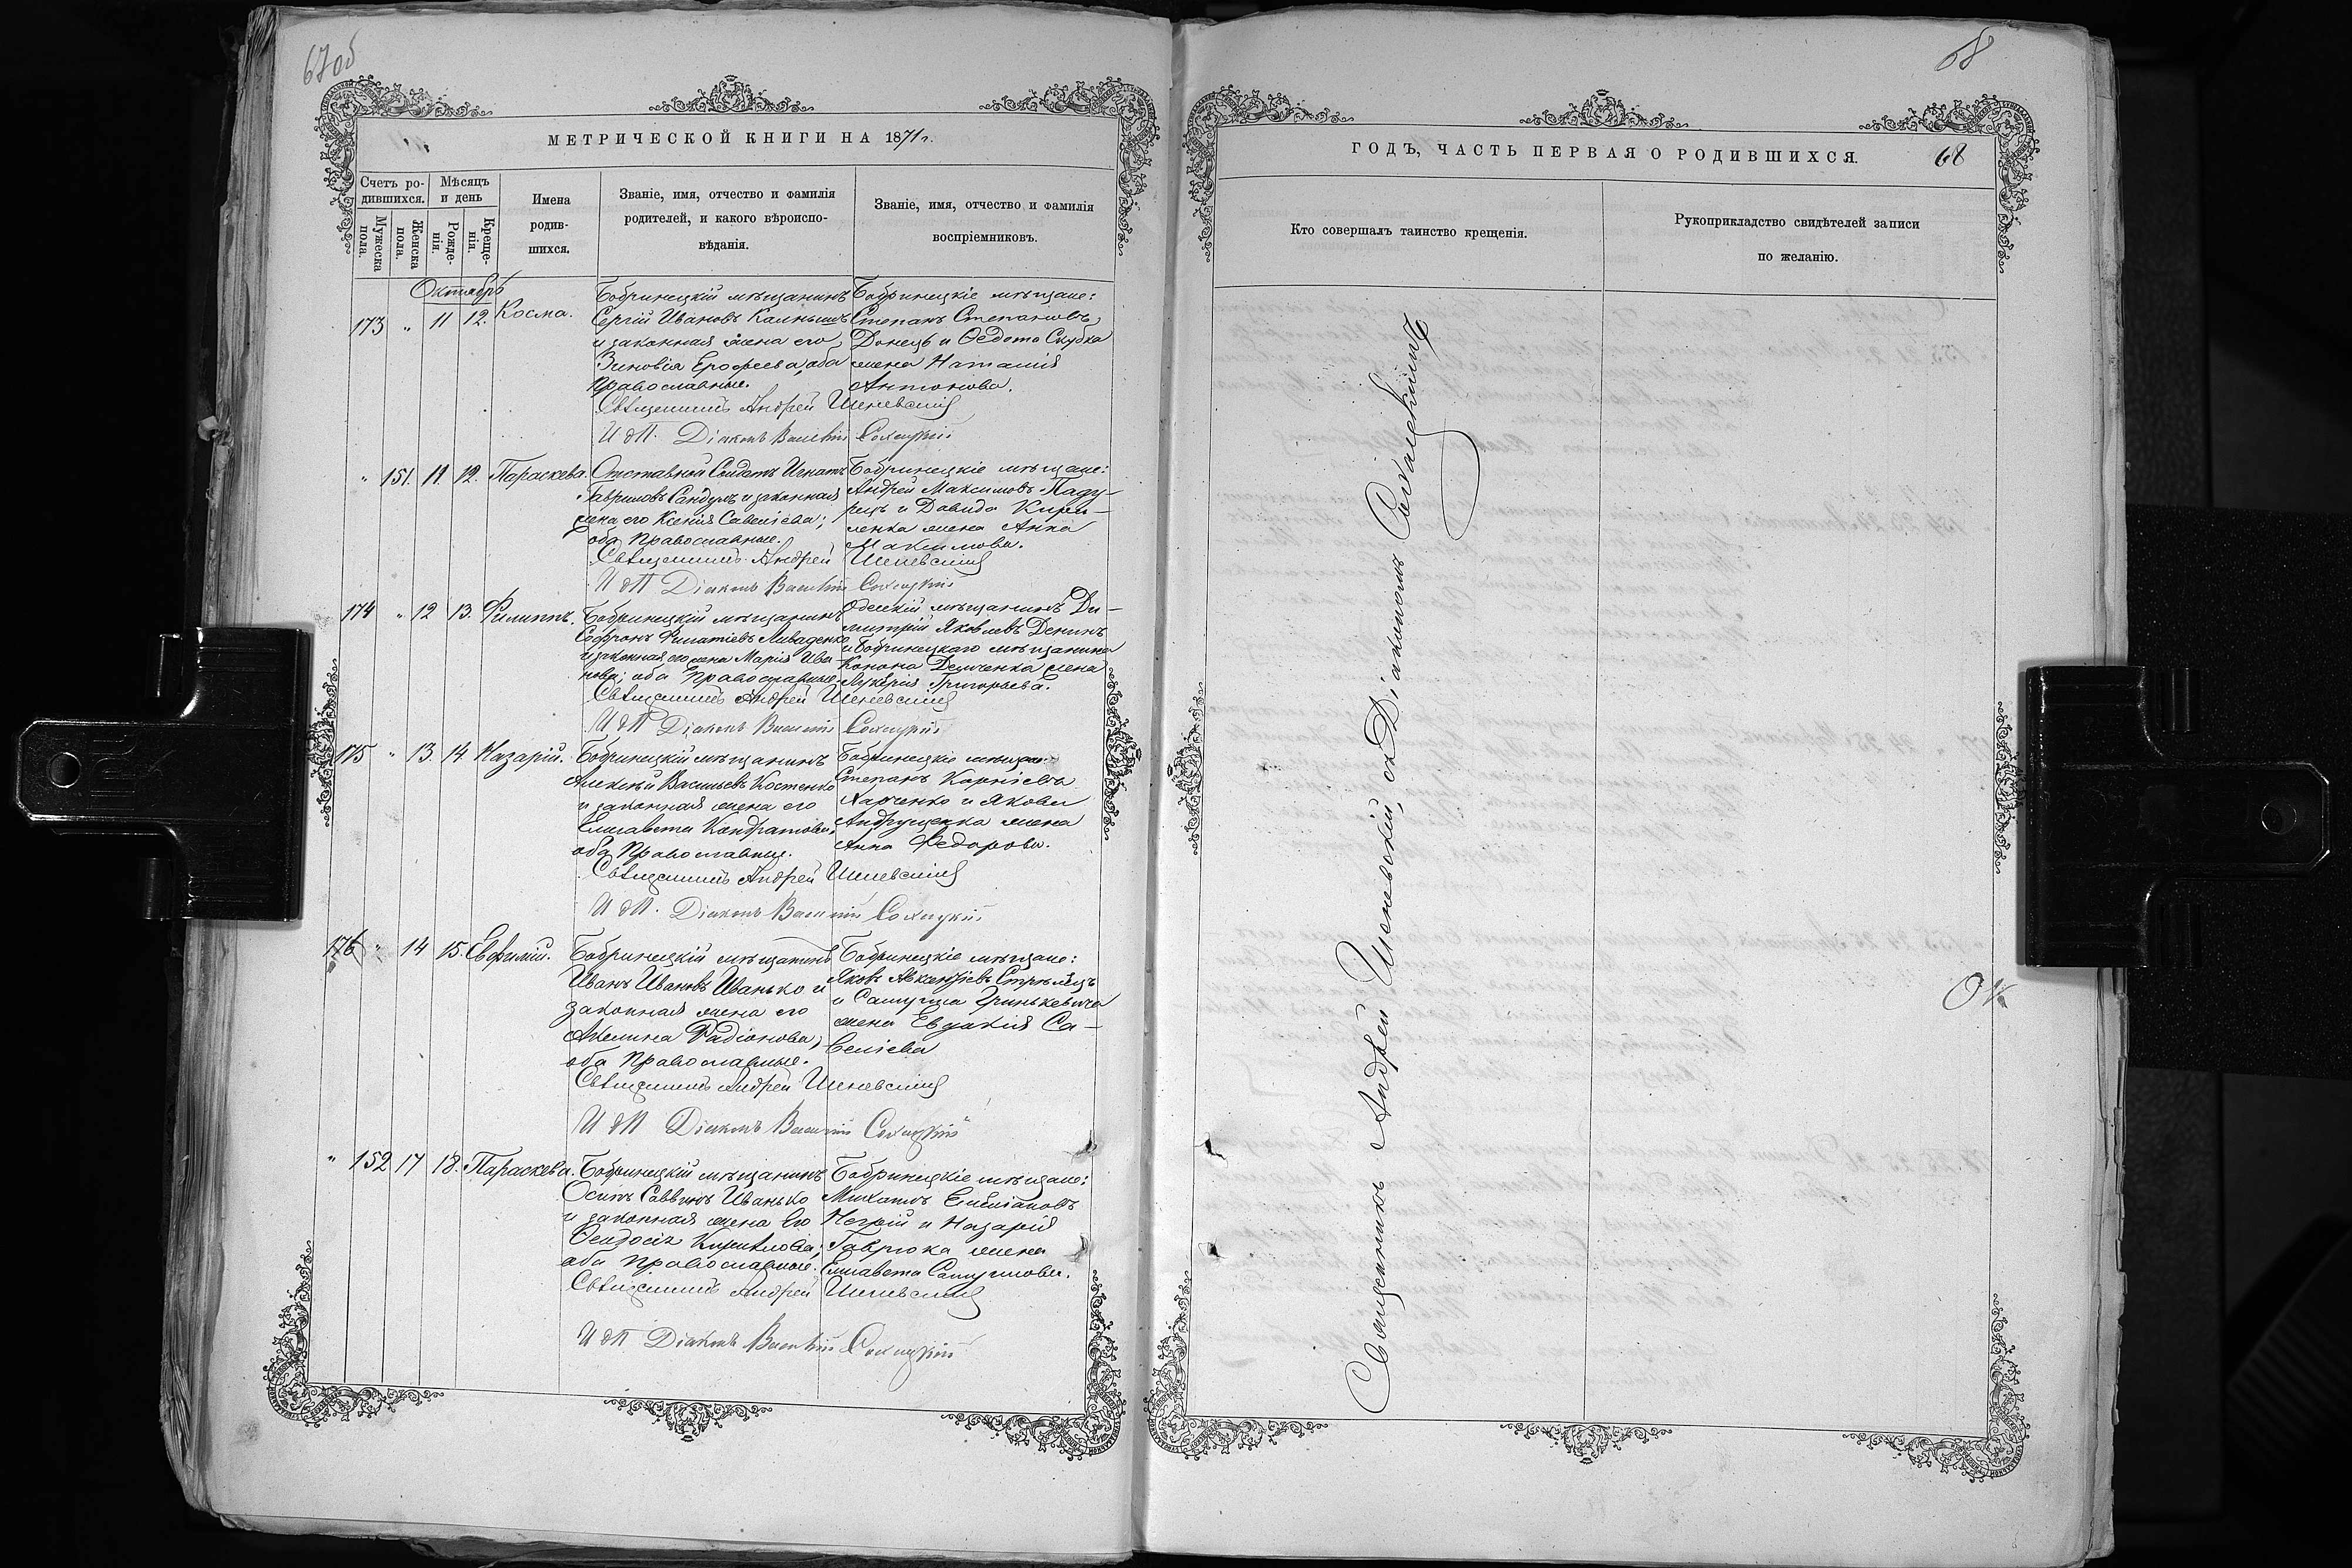 67об
МЕТРИЧЕСКОЙ КНИГИ НА 1871 г.
Счетъ ро-
дившихся.
Мужеска
пола.
Женска
пола.
Мѣсяцъ
и день
Рожде-
нія.
Креще-
нія.
Имена
родив-
шихся.
Званіе, имя, отчество и фамилія
родителей, и какого вѣроиспо-
вѣданія.
Званіе, имя, отчество и фамилія
воспріемниковъ.
Октябрь
173 " 11 12. Косма.
Бобринецкій мѣщанинъ
Сергій Ивановъ
и законная жена его
Зиновія Ерофеева, оба
православные.
Бобринецкіе мѣщане:
Степанъ Степановъ
Донецъ и Ѳедота Скубка
жена Наталія
Антонова.
Священникъ Андрей Шеневскій
И д П. Діаконъ Василій Сохацкій
" 151. 11 12. Параскева.
Отставной Солдатъ Игнатъ
Гавриловъ Сандулъ и законная
жена его Ксенія Савеліева;
оба православные.
Бобринецкіе мѣщане:
Андрей Максимовъ Паду-
рецъ и Давида Кири-
ленка жена Анна
Максимова.
Священникъ Андрей Шеневскій
И д П Діаконъ Василій Сохацкій
174 " 12 13. Филиппъ.
Бобринецкій мѣщанинъ
Софронъ Филатіевъ Ливаденко
и законная его жена Марія Ива-
нова; оба православные.
Одесскій мѣщанинъ Ди-
митрій Яковлевъ Денинъ
и Бобринецкаго мѣщанина
Конона Демченка жена
Лукерія Григорьева.
Священникъ Андрей Шеневскій
И д П Діаконъ Василій Сохацкій
175 " 13. 14. Назарій.
Бобринецкій мѣщанинъ
Алексѣй Васильевъ Костенко
и законная жена его
Елисавета Кондратова,
оба православные.
Бобринецкіе мѣщане:
Степанъ Карпіевъ
Харченко и Якова
Андрущенка жена
Анна Федорова.
Священникъ Андрей Шеневскій
И д П. Діаконъ Василій Сохацкій
176 " 14 15. Евфимій.
Бобринецкій мѣщанинъ
Иванъ Ивановъ Иванько и
законная жена его
Акилина Радіонова,
оба православные.
Бобринецкіе мѣщане:
Яковъ Авксентіевъ Стрѣлецъ
и Самуила Гринькевича
жена Евдокія Са-
веліева
Священникъ Андрей Шеневскій
И д П Діаконъ Василій Сохацкій
" 152 17 18. Параскева.
Бобринецкій мѣщанинъ
Осипъ Саввинъ Иванько
и законная жена его
Ѳеодосія Кирилова;
оба православные.
Бобринецкіе мѣщане:
Михаилъ Емеліановъ
Негрій и Назарія
Гаврюка жена
Елисавета Самуилова.
Священникъ Андрей Шеневскій
И д П Діаконъ Василій Сохацкій
68
ГОДЪ, ЧАСТЬ ПЕРВАЯ О РОДИВШИХСЯ.
68
Кто совершалъ таинство крещенія.
Рукоприкладство свидѣтелей записи
по желанію.
Священникъ Андрей Шеневскій, съ Діакономъ Сохацкимъ